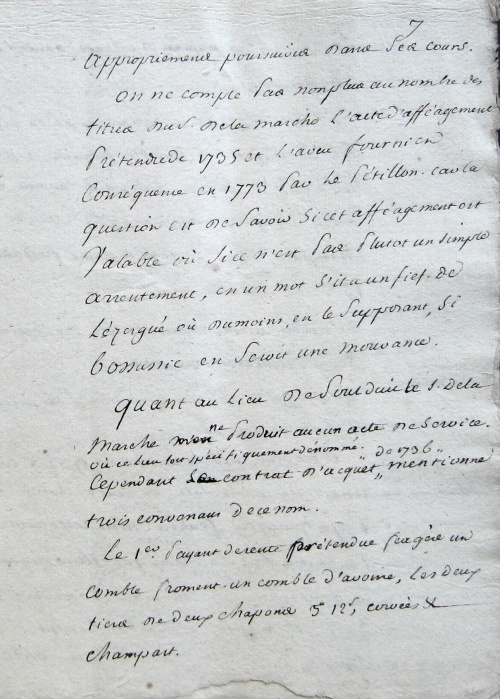 7
appropriement poursuivie dans ses cours.
on ne compte pas non plus au nombre des
titres du s. de la marche l'acte d'afféagement
prétendu de 1735 et l'aveu fourni en
conséquence en 1773 par le Pétillon. car la
question est de savoir si cet afféagement est
valable ou si ce n'est pas plutot un simple
arrentement, en un mot s'il a un fief de
Lézergué où du moins, en le supposant, si
bossunic en seroit une mouvance.
quant au lieu de Pouldu le s. de la
marche ne produit aucun acte de service.
où ce lieu soit spécifiquement dénommé.
Cependant son contrat d'acquet de 1736 mentionne
trois convenans de ce nom.
Le 1er payant de rente prétendue feagère un
comble froment un comble d'avoine, les deux
tiers de deux chapons 3# 12s, corvées &
champart.